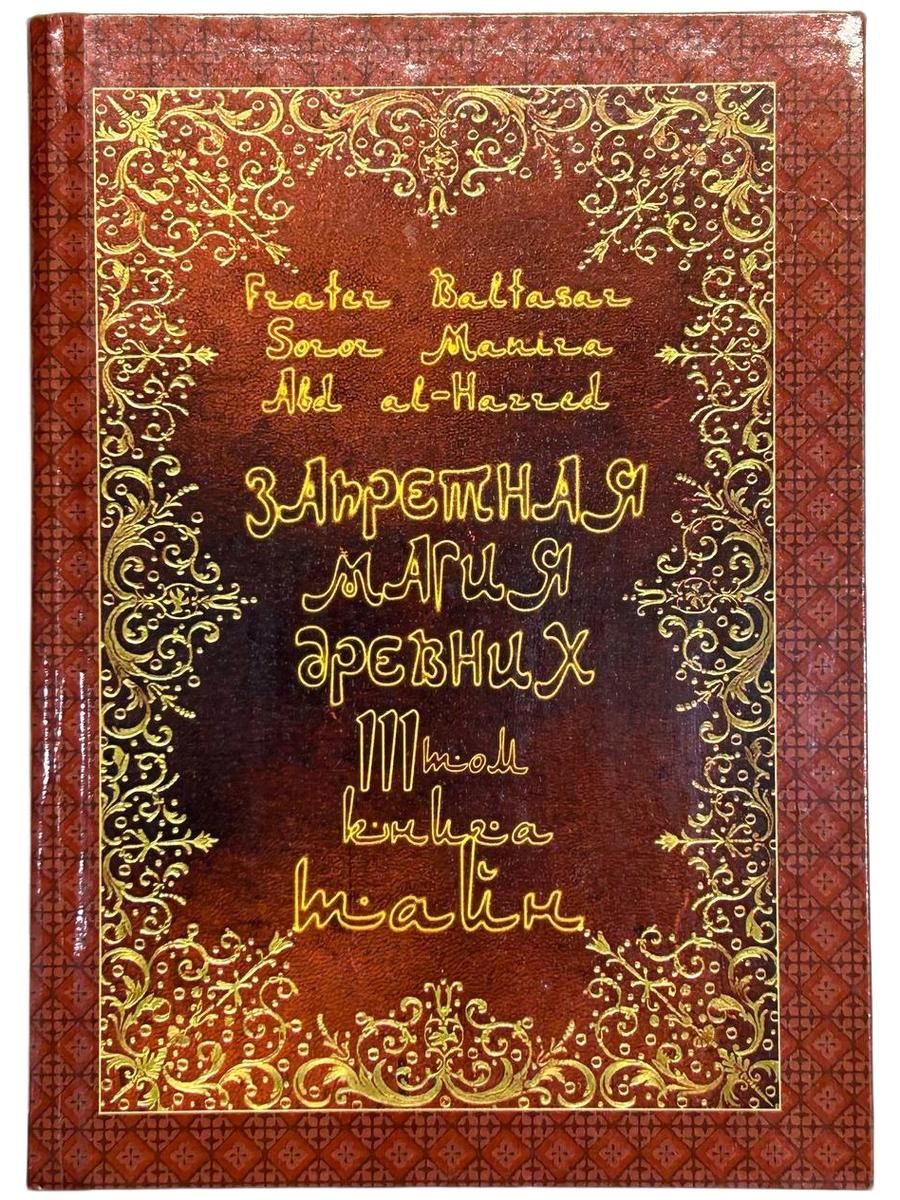 Frater Baltasar
Soror Manira
Abd al-Hazred
ЗАПРЕТНАЯ
МАГИЯ
ДРЕВНИХ
III том
книга
тайн